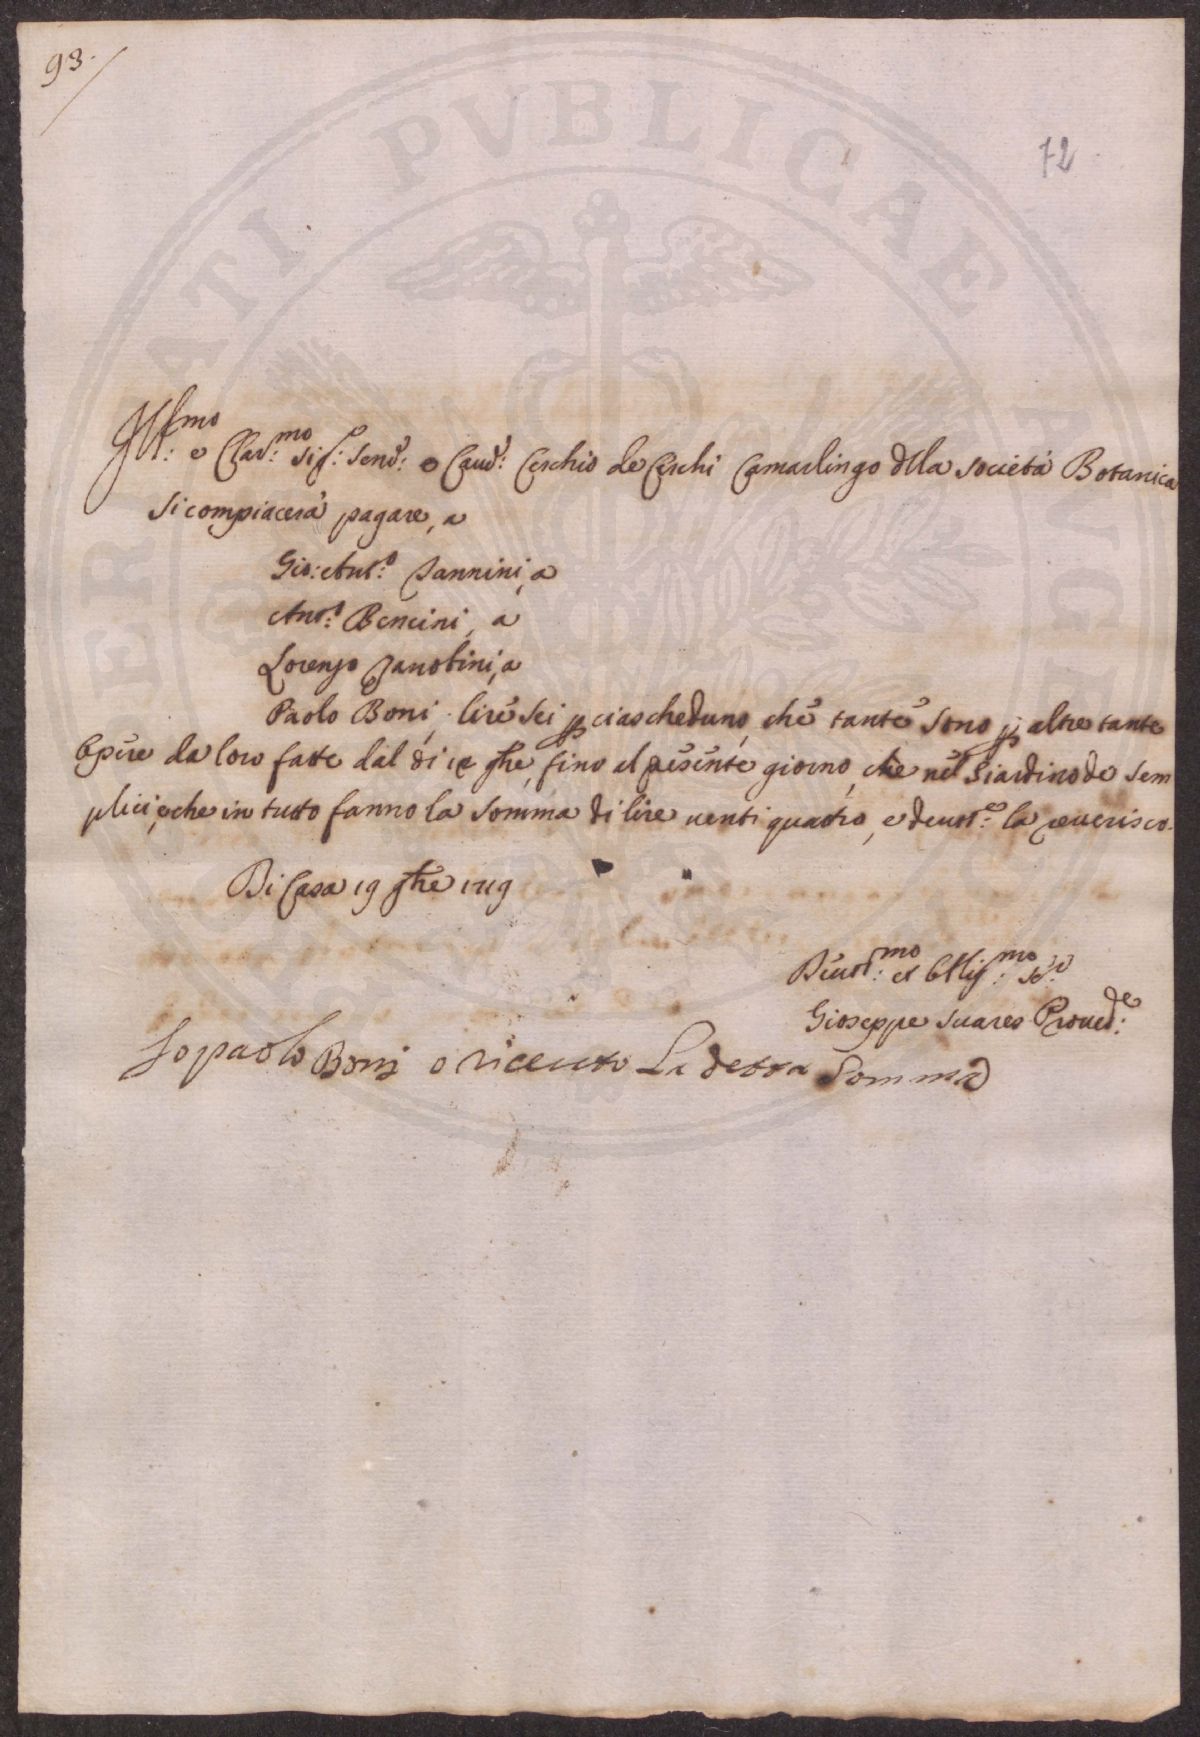 93.
72
Ill:mo e Clar:mo Sig:e Send:e e Caud:e Cerchio de Cerchi Camarlingo dlla Società Botanica
si compiacerà pagare, a
Gio: Ant:o Zannini, a
Ant:o Bencini, a
Lorenzo Zanobini, a
Paolo Boni, lire sei p ciascheduno, che tante sono p altre tante
Opere da loro fatte dal di 9bre, fino al presente giorno, che nel Giardino de Sem
plici, e che in tutto fanno la somma di lire uenti quattro, e deuot:e la reuerisco.
Di Casa 19 9bre 1719
Deuot:mo et Obblig:mo Se:re
Gioseppe Suares Proued:re
Io paolo Boni o riceuto La detta Somma
PVBLICAE